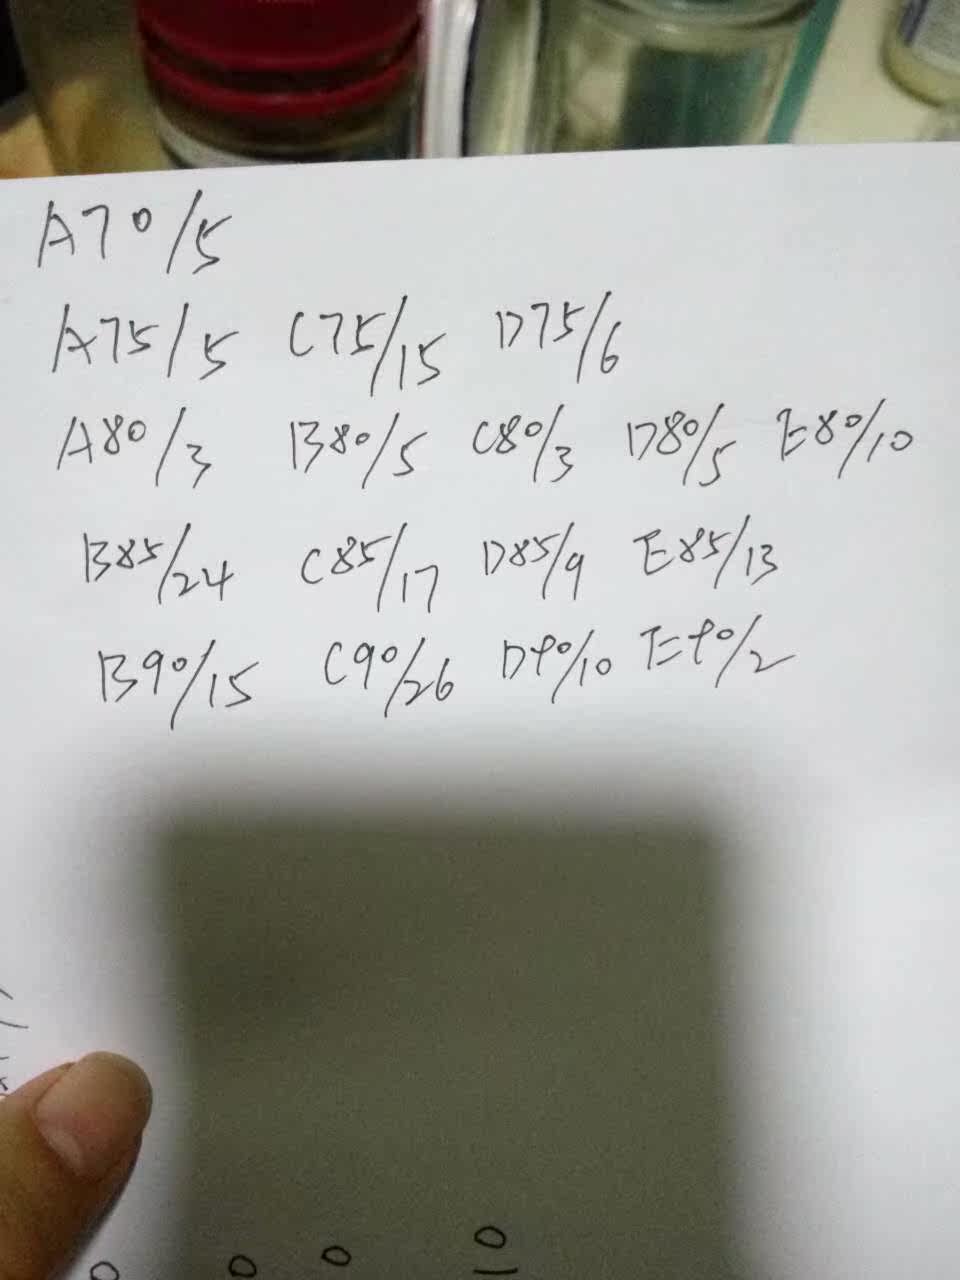 A70/5
A75/5 C75/15 D75/6
A80/3 B80/5 C80/3 D80/5 E80/10
B85/24 C85/17 D85/9 E85/13
B90/15 C90/26 D90/10 E90/2
0 0 0 10